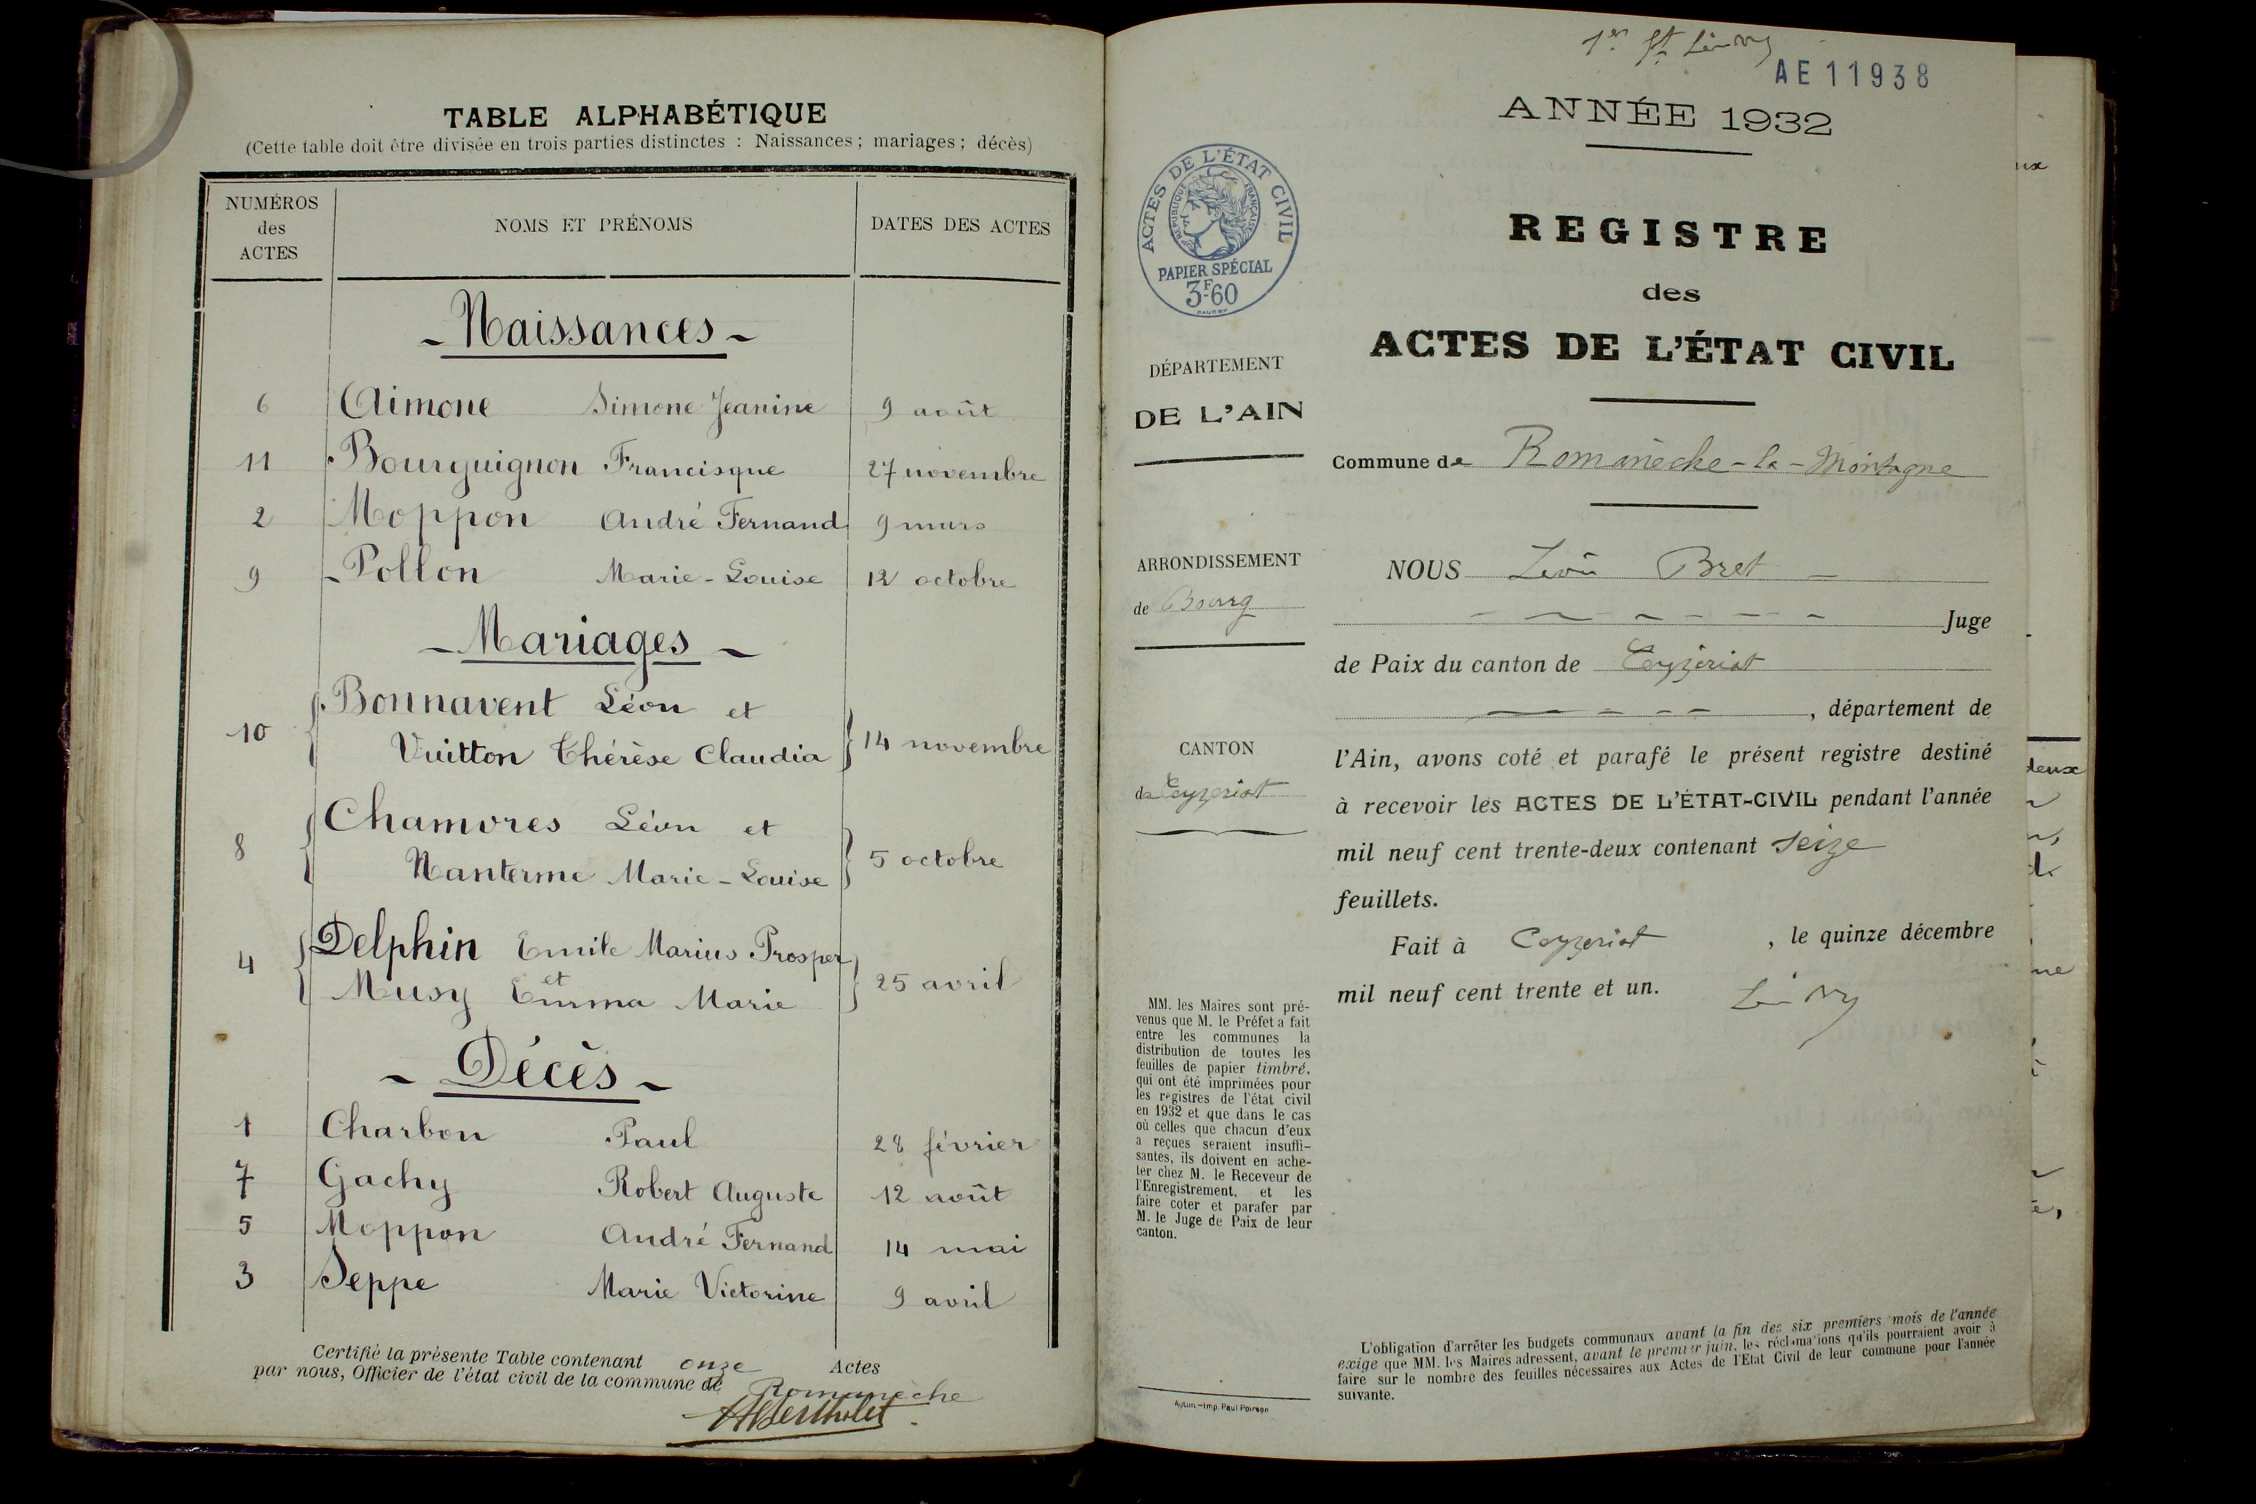 TABLE ALPHABÉTIQUE
(Cette table doit être divisée en trois parties distinctes : Naissances ; mariages ; décès)
NUMÉROS des ACTES NOMS ET PRÉNOMS DATES DES ACTES
- Naissances -
6 Aimone Simone Jeanine 9 août
11 Bourguignon Francisque 27 novembre
2 Moppon André Fernand 9 mars
9 Pollon Marie-Louise 12 octobre
- Mariages -
Bonnavent Léon et
10 Vuitton Thérèse Claudia 14 novembre
Chamores Léon et
8 Nanterme Marie-Louise 5 octobre
Delphin Emile Marius Prosper
et
4 Musy Emma Marie 25 avril
- Décès -
1 Charbon Paul 28 février
7 Gachy Robert Auguste 12 août
5 Moppon André Fernand 14 mai
3 Seppe Marie Victorine 9 avril
Certifié la présente Table contenant onze Actes
par nous, Officier de l'état civil de la commune de Romanèche
1er
AE11938
ANNÉE 1932
ACTES DE L'ÉTAT CIVIL
RÉPUBLIQUE FRANÇAISE
PAPIER SPÉCIAL
3F.60
DÉPARTEMENT
DE L'AIN
ARRONDISSEMENT
de Bourg
CANTON
de Ceyzeriat
MM. les Maires sont pré-
venus que M. le Préfet a fait
entre les communes la
distribution de toutes les
feuilles de papier timbré,
qui ont été imprimées pour
les registres de l'état civil
en 1932 et que dans le cas
où celles que chacun d'eux
a reçues seraient insuffi-
santes, ils doivent en ache-
ter chez M. le Receveur de
l'Enregistrement, et les
faire coter et parafer par
M. le Juge de Paix de leur
canton.
Autun.-Imp. Paul Poirson
REGISTRE
des
ACTES DE L'ÉTAT CIVIL
Commune de Romanèche-la-Montagne
NOUS Léon Bret
Juge
de Paix du canton de Ceyzériat
, département de
l'Ain, avons coté et parafé le présent registre destiné
à recevoir les ACTES DE L'ÉTAT-CIVIL pendant l'année
mil neuf cent trente-deux contenant seize
feuillets.
Fait à Ceyzeriat , le quinze décembre
mil neuf cent trente et un.
L'obligation d'arrêter les budgets communaux avant la fin des six premiers mois de l'année
exige que MM. les Maires adressent, avant le premier juin, les réclamations qu'ils pourraient avoir à
faire sur le nombre des feuilles nécessaires aux Actes de l'Etat Civil de leur commune pour l'année
suivante.